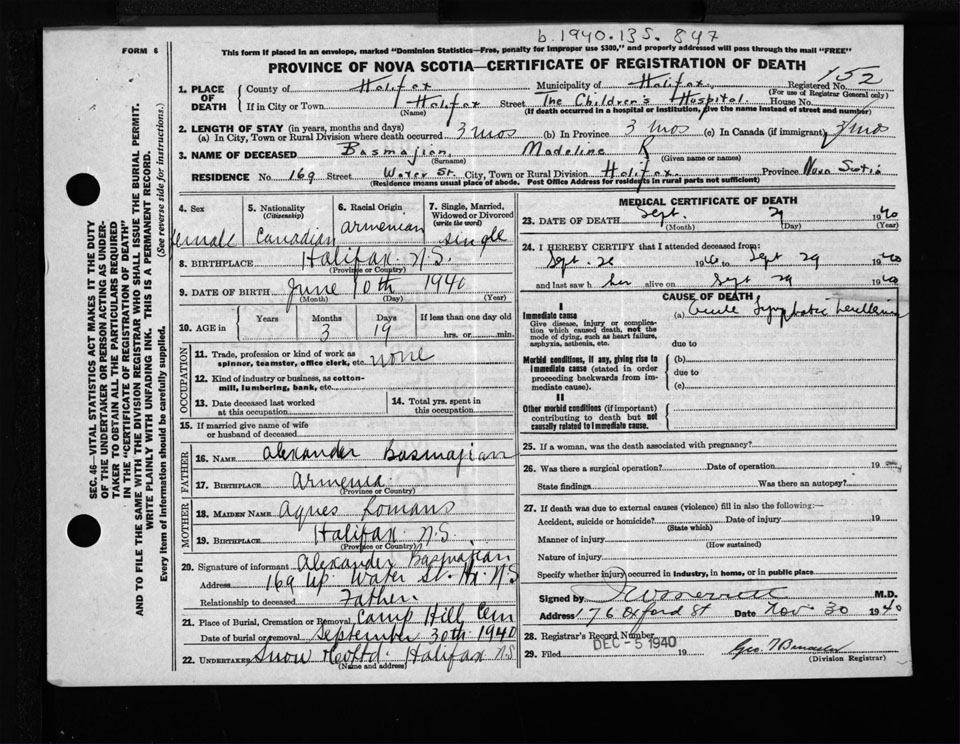 b.1940.135.897
FORM 6
This form if placed in an envelope, marked "Dominion Statistics—Free, penalty for improper use $300," and properly addressed will pass through the mail "FREE"
PROVINCE OF NOVA SCOTIA—CERTIFICATE OF REGISTRATION OF DEATH
152
1. PLACE OF DEATH
County of Halifax Municipality of Halifax Registered No.
(For use of Registrar General only)
If in City or Town Halifax Street The Children's Hospital House No.
(Name) (If death occurred in a hospital or institution, give the name instead of street and number)
2. LENGTH OF STAY (in years, months and days)
(a) In City, Town or Rural Division where death occurred 3 mos (b) In Province 3 mos (c) In Canada (if immigrant) 3 mos
3. NAME OF DECEASED Basmajian, Madeline R
(Surname) (Given name or names)
RESIDENCE No. 169 Street Water St. City, Town or Rural Division Halifax Province Nova Scotia
(Residence means usual place of abode. Post Office Address for residents in rural parts not sufficient)
4. Sex 5. Nationality (Citizenship) 6. Racial Origin 7. Single, Married, Widowed or Divorced (write the word)
female Canadian Armenian single
8. BIRTHPLACE Halifax N.S.
(Province or Country)
9. DATE OF BIRTH June 10th 1940
(Month) (Day) (Year)
10. AGE in Years Months Days If less than one day old
3 19 hrs. or min.
OCCUPATION
11. Trade, profession or kind of work as spinner, teamster, office clerk, etc. none
12. Kind of industry or business, as cotton-mill, lumbering, bank, etc.
13. Date deceased last worked at this occupation
14. Total yrs. spent in this occupation
15. If married give name of wife or husband of deceased
FATHER
16. NAME Alexander Basmajian
17. BIRTHPLACE Armenia
(Province or Country)
MOTHER
18. MAIDEN NAME Agnes Romans
19. BIRTHPLACE Halifax N.S.
(Province or Country)
20. Signature of informant Alexander Basmajian
Address 169 Up. Water St. Hx. N.S
Relationship to deceased Father
21. Place of Burial, Cremation or Removal Camp Hill Cem
Date of burial or removal September 30th 1940
22. UNDERTAKER Snow & Co Ltd. Halifax N.S
(Name and address)
MEDICAL CERTIFICATE OF DEATH
23. DATE OF DEATH Sept. 29 1940
(Month) (Day) (Year)
24. I HEREBY CERTIFY that I attended deceased from:
Sept. 26 1940 to Sept 29 1940
and last saw her alive on Sept 29 1940
CAUSE OF DEATH
I
Immediate cause
Give disease, injury or complication which caused death, not the mode of dying, such as heart failure, asphyxia, asthenia, etc.
(a) Acute Lymphatic Leukemia
due to
Morbid conditions, if any, giving rise to immediate cause (stated in order proceeding backwards from immediate cause).
(b)
due to
(c)
II
Other morbid conditions (if important) contributing to death but not causally related to immediate cause.
25. If a woman, was the death associated with pregnancy?
26. Was there a surgical operation? Date of operation 19
State findings Was there an autopsy?
27. If death was due to external causes (violence) fill in also the following:—
Accident, suicide or homicide? Date of injury 19
(State which)
Manner of injury
(How sustained)
Nature of injury
Specify whether injury occurred in industry, in home, or in public place
Signed by M.D.
Address 176 Oxford St Date Nov. 30 1940
28. Registrar's Record Number
DEC -5 1940
29. Filed 19 Geo.
(Division Registrar)
SEC. 46—VITAL STATISTICS ACT MAKES IT THE DUTY
OF THE UNDERTAKER OR PERSON ACTING AS UNDER-
TAKER TO OBTAIN ALL THE PARTICULARS REQUIRED
IN THE "CERTIFICATE OF REGISTRATION OF DEATH"
AND TO FILE THE SAME WITH THE DIVISION REGISTRAR WHO SHALL ISSUE THE BURIAL PERMIT.
WRITE PLAINLY WITH UNFADING INK. THIS IS A PERMANENT RECORD.
Every item of information should be carefully supplied. (See reverse side for instructions.)